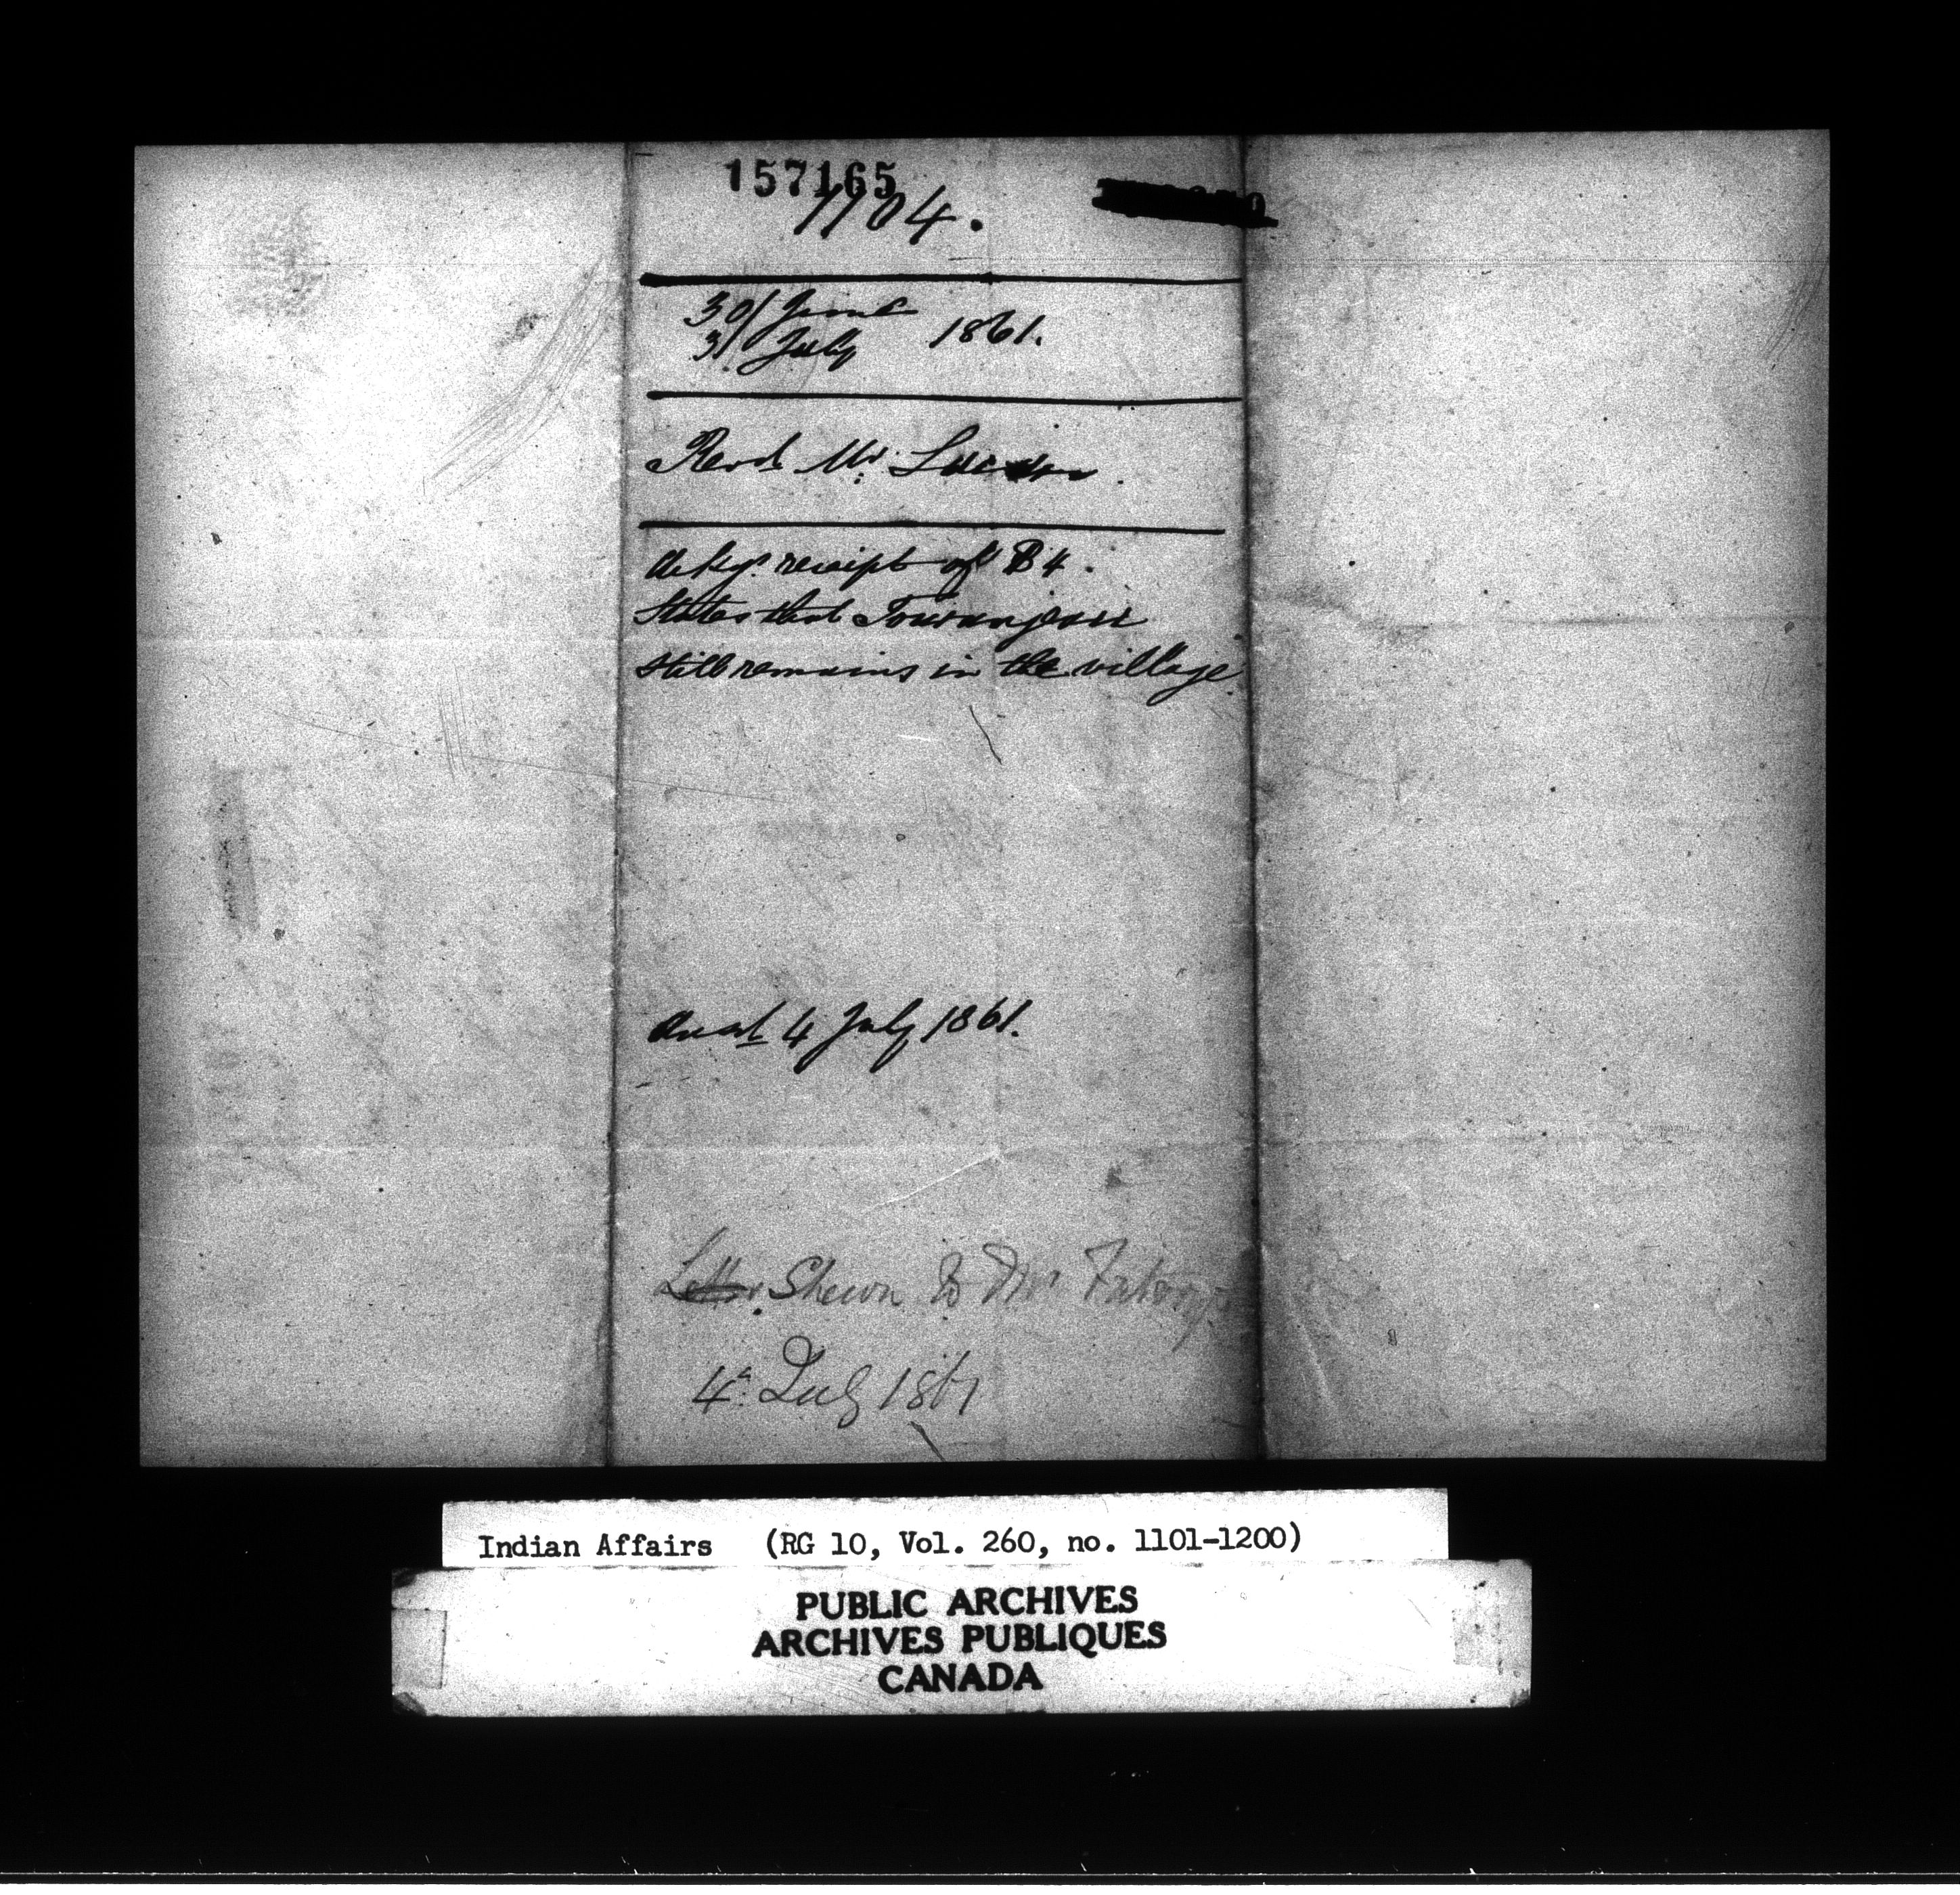 157165
1104.
30/ June
3/ July 1861.
Revd. Mr.
Ackgs. receipt of $4.
States that
still remains in the village.
Ansd. 4 July 1861.
Letter Shewn to Mr
4th July 1861
Indian Affairs (RG 10, Vol. 260, no. 1101-1200)
PUBLIC ARCHIVES
ARCHIVES PUBLIQUES
CANADA